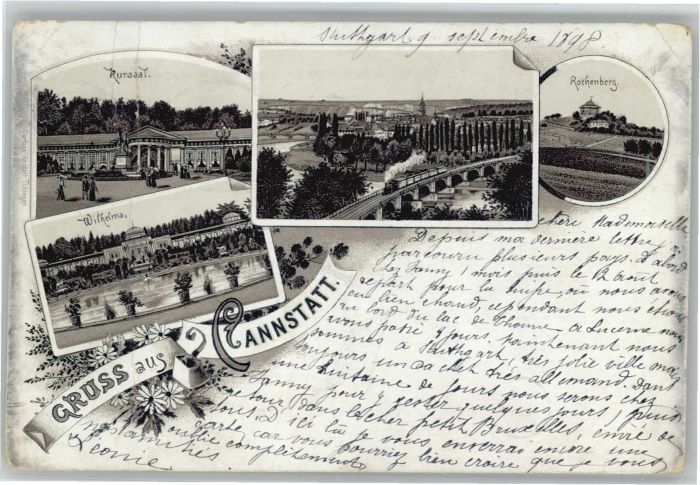 Stuttgart 9 septembre 1898.
Kursaal.
Rothenberg.
Wilhelma.
GRUSS aus CANNSTATT.
Chère Mademoiselle
Depuis ma dernière lettre j'ai
parcouru plusieurs pays. D'abord
chez Fanny 1 mois puis le
départ pour la Suisse où nous avons
eu bien chaud, cependant nous étions
au bord du lac de Thoune à Lucerne nous
avons passé jours, maintenant nous
sommes à Stuttgart, très jolie ville mais
toujours un cachet très allemand. Dans
une huitaine de jours nous serons chez
Fanny pour y rester quelques jours, puis
retour dans le cher petit Bruxelles,
tous. D'ici là je vous enverrai encore une
carte, car vous pourriez bien croire que je vous
oublie complètement.
nos amitiés
Léonie